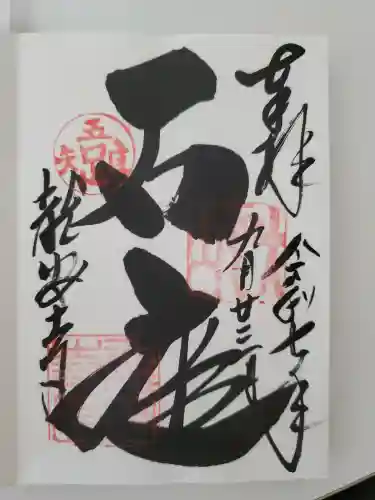 奉拝
令和七年
九月廿三日
石庭
龍安寺